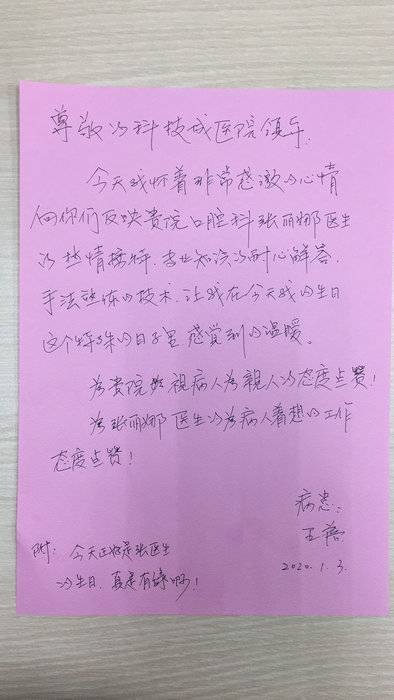 尊敬的科技城医院领导:
今天我怀着非常感激的心情
向你们反映贵院口腔科张丽娜医生
的热情接待,专业知识的耐心解答,
手法熟练的技术,让我在今天我的生日
这个特殊的日子里感觉到的温暖。
为贵院能视病人为親人的态度点赞!
为张丽娜医生的为病人着想的工作
态度点赞!
病患:
王蓓
2020.1.3.
附: 今天正好是张医生
的生日,真是有缘啊!